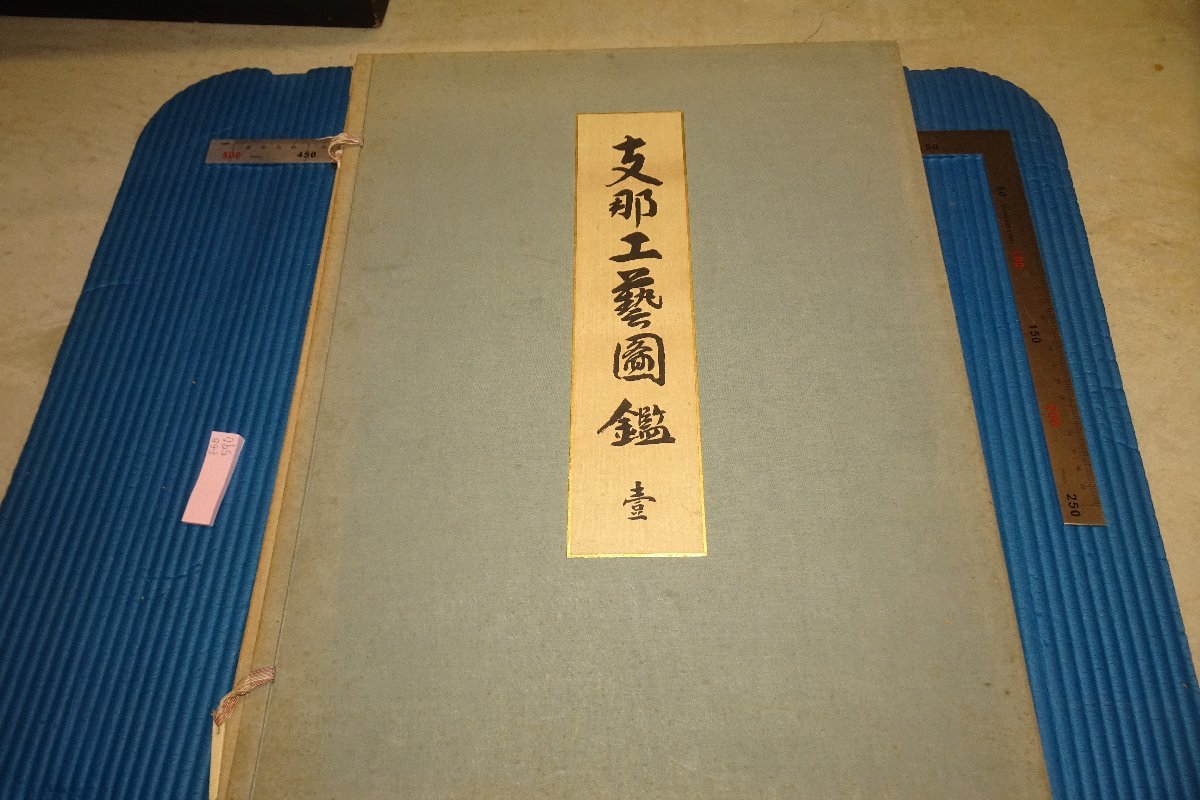 支那工藝圖鑑
壹
500
450
50
50
150
250